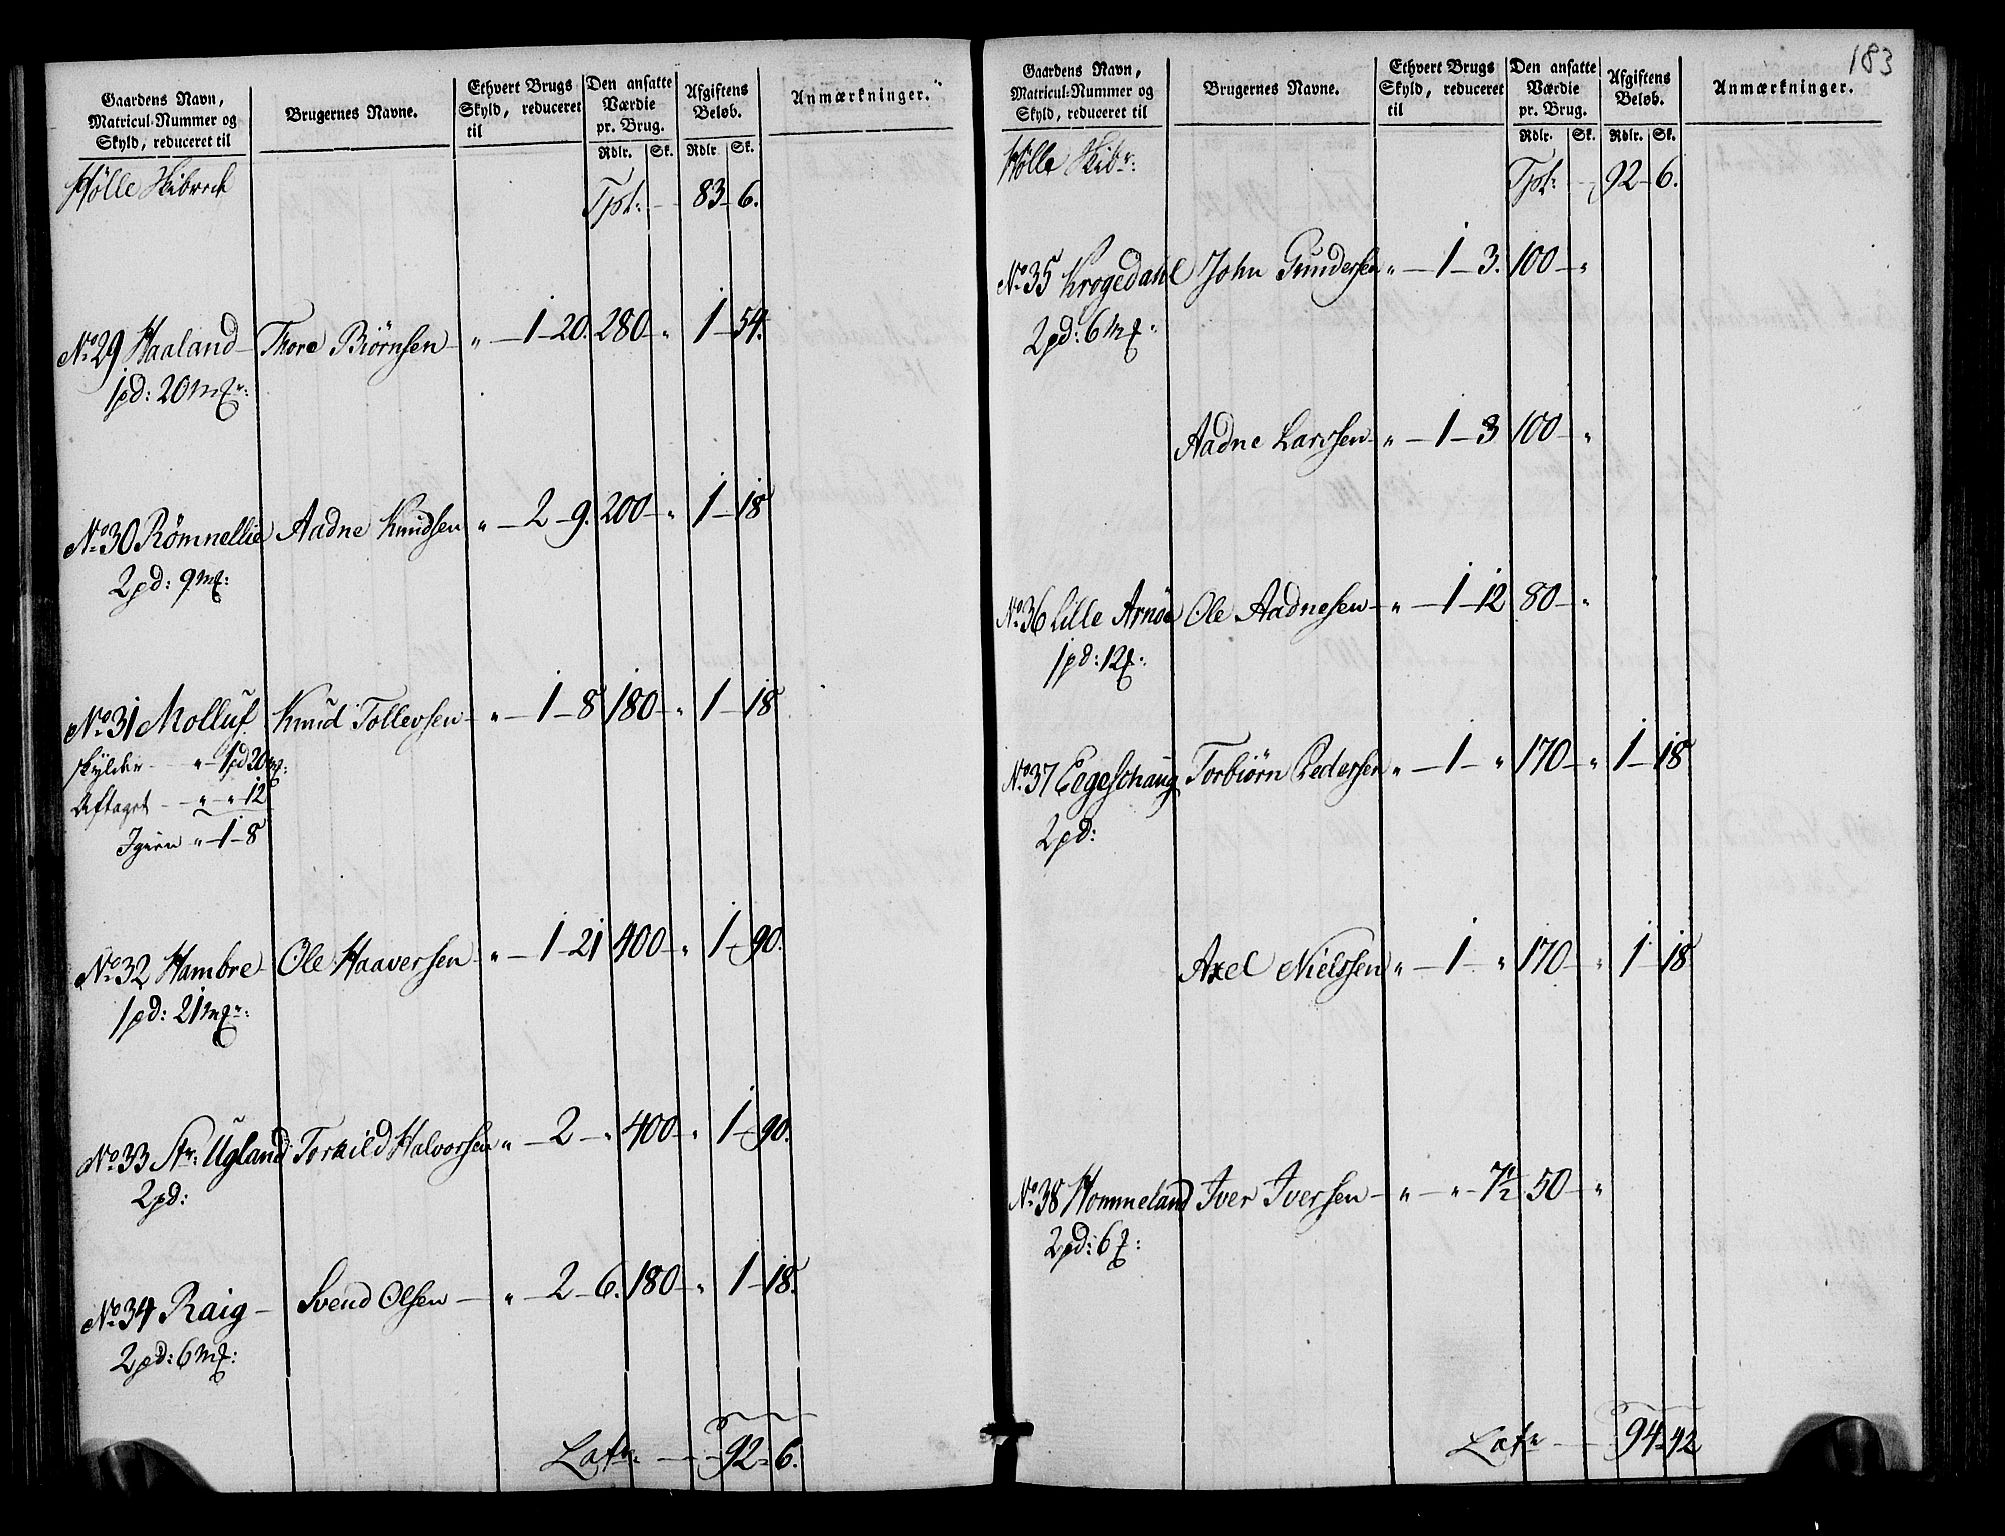 Gaardens Navn, Matricul-Nummer og Skyld, reduceret til
Brugernes Navne.
Ethvert Brugs Skyld, reduceret til
Den ansatte Værdie pr. Brug.
Afgiftens Beløb.
Anmærkninger.
Rdlr. Sk. Rdlr. Sk.
Hølle Skibred Tpt: 83 - 6.
No 29 Haaland - Thore Biørnsen - „ - 1 - 20. 280 - „ 1 - 54.
1pd: 20 mk:
No 30 Römnellie Aadne Knudsen „ - 2 - 9. 200 - „ 1 - 18
2pd: 9 mk:
No 31 Molluf Knud Tollevsen - „ - 1 - 8 180 - „ 1 - 18
skylder - „ - 1pd 20 mk:
Aftaget - „ - „ - 12
Igien „ - 1 - 8
No 32 Hambre - Ole Haaversen - „ - 1 - 21 400 - „ 1 - 90.
1pd: 21 mk:
No 33 Str: Ugland: Torkild Halvorsen „ - 2 - „ 400 - „ 1 - 90.
2pd:
No 34 Raig - Svend Olsen - „ - 2 - 6. 180 - „ 1 - 18.
2pd: 6 mk:
Lat: - 92 - 6.
183
Gaardens Navn, Matricul-Nummer og Skyld, reduceret til
Brugernes Navne.
Ethvert Brugs Skyld, reduceret til
Den ansatte Værdie pr. Brug.
Afgiftens Beløb.
Anmærkninger.
Rdlr. Sk. Rdlr. Sk.
Hølle Skibr: Tpt: - 92 - 6.
No 35 Krogedahl John Gundersen „ - 1 - 3. 100 - „
2pd: 6 mk:
Aadne Larssen - „ - 1 - 3 100 - „
No 36 Lille Arnöe Ole Aadnesen - „ - 1 - 12 80 - „
1pd: 12 mk:
No 37 Eegeschaug Torbiørn Pedersen „ - 1 - „ 170 - „ 1 - 18
2pd:
Axel Nielssen „ - 1 - „ 170 - „ 1 - 18
No 38 Hommeland Iver Iversen - „ - „ - 7½ 50 - „
2pd: 6 mk:
Lat: - 94 - 42